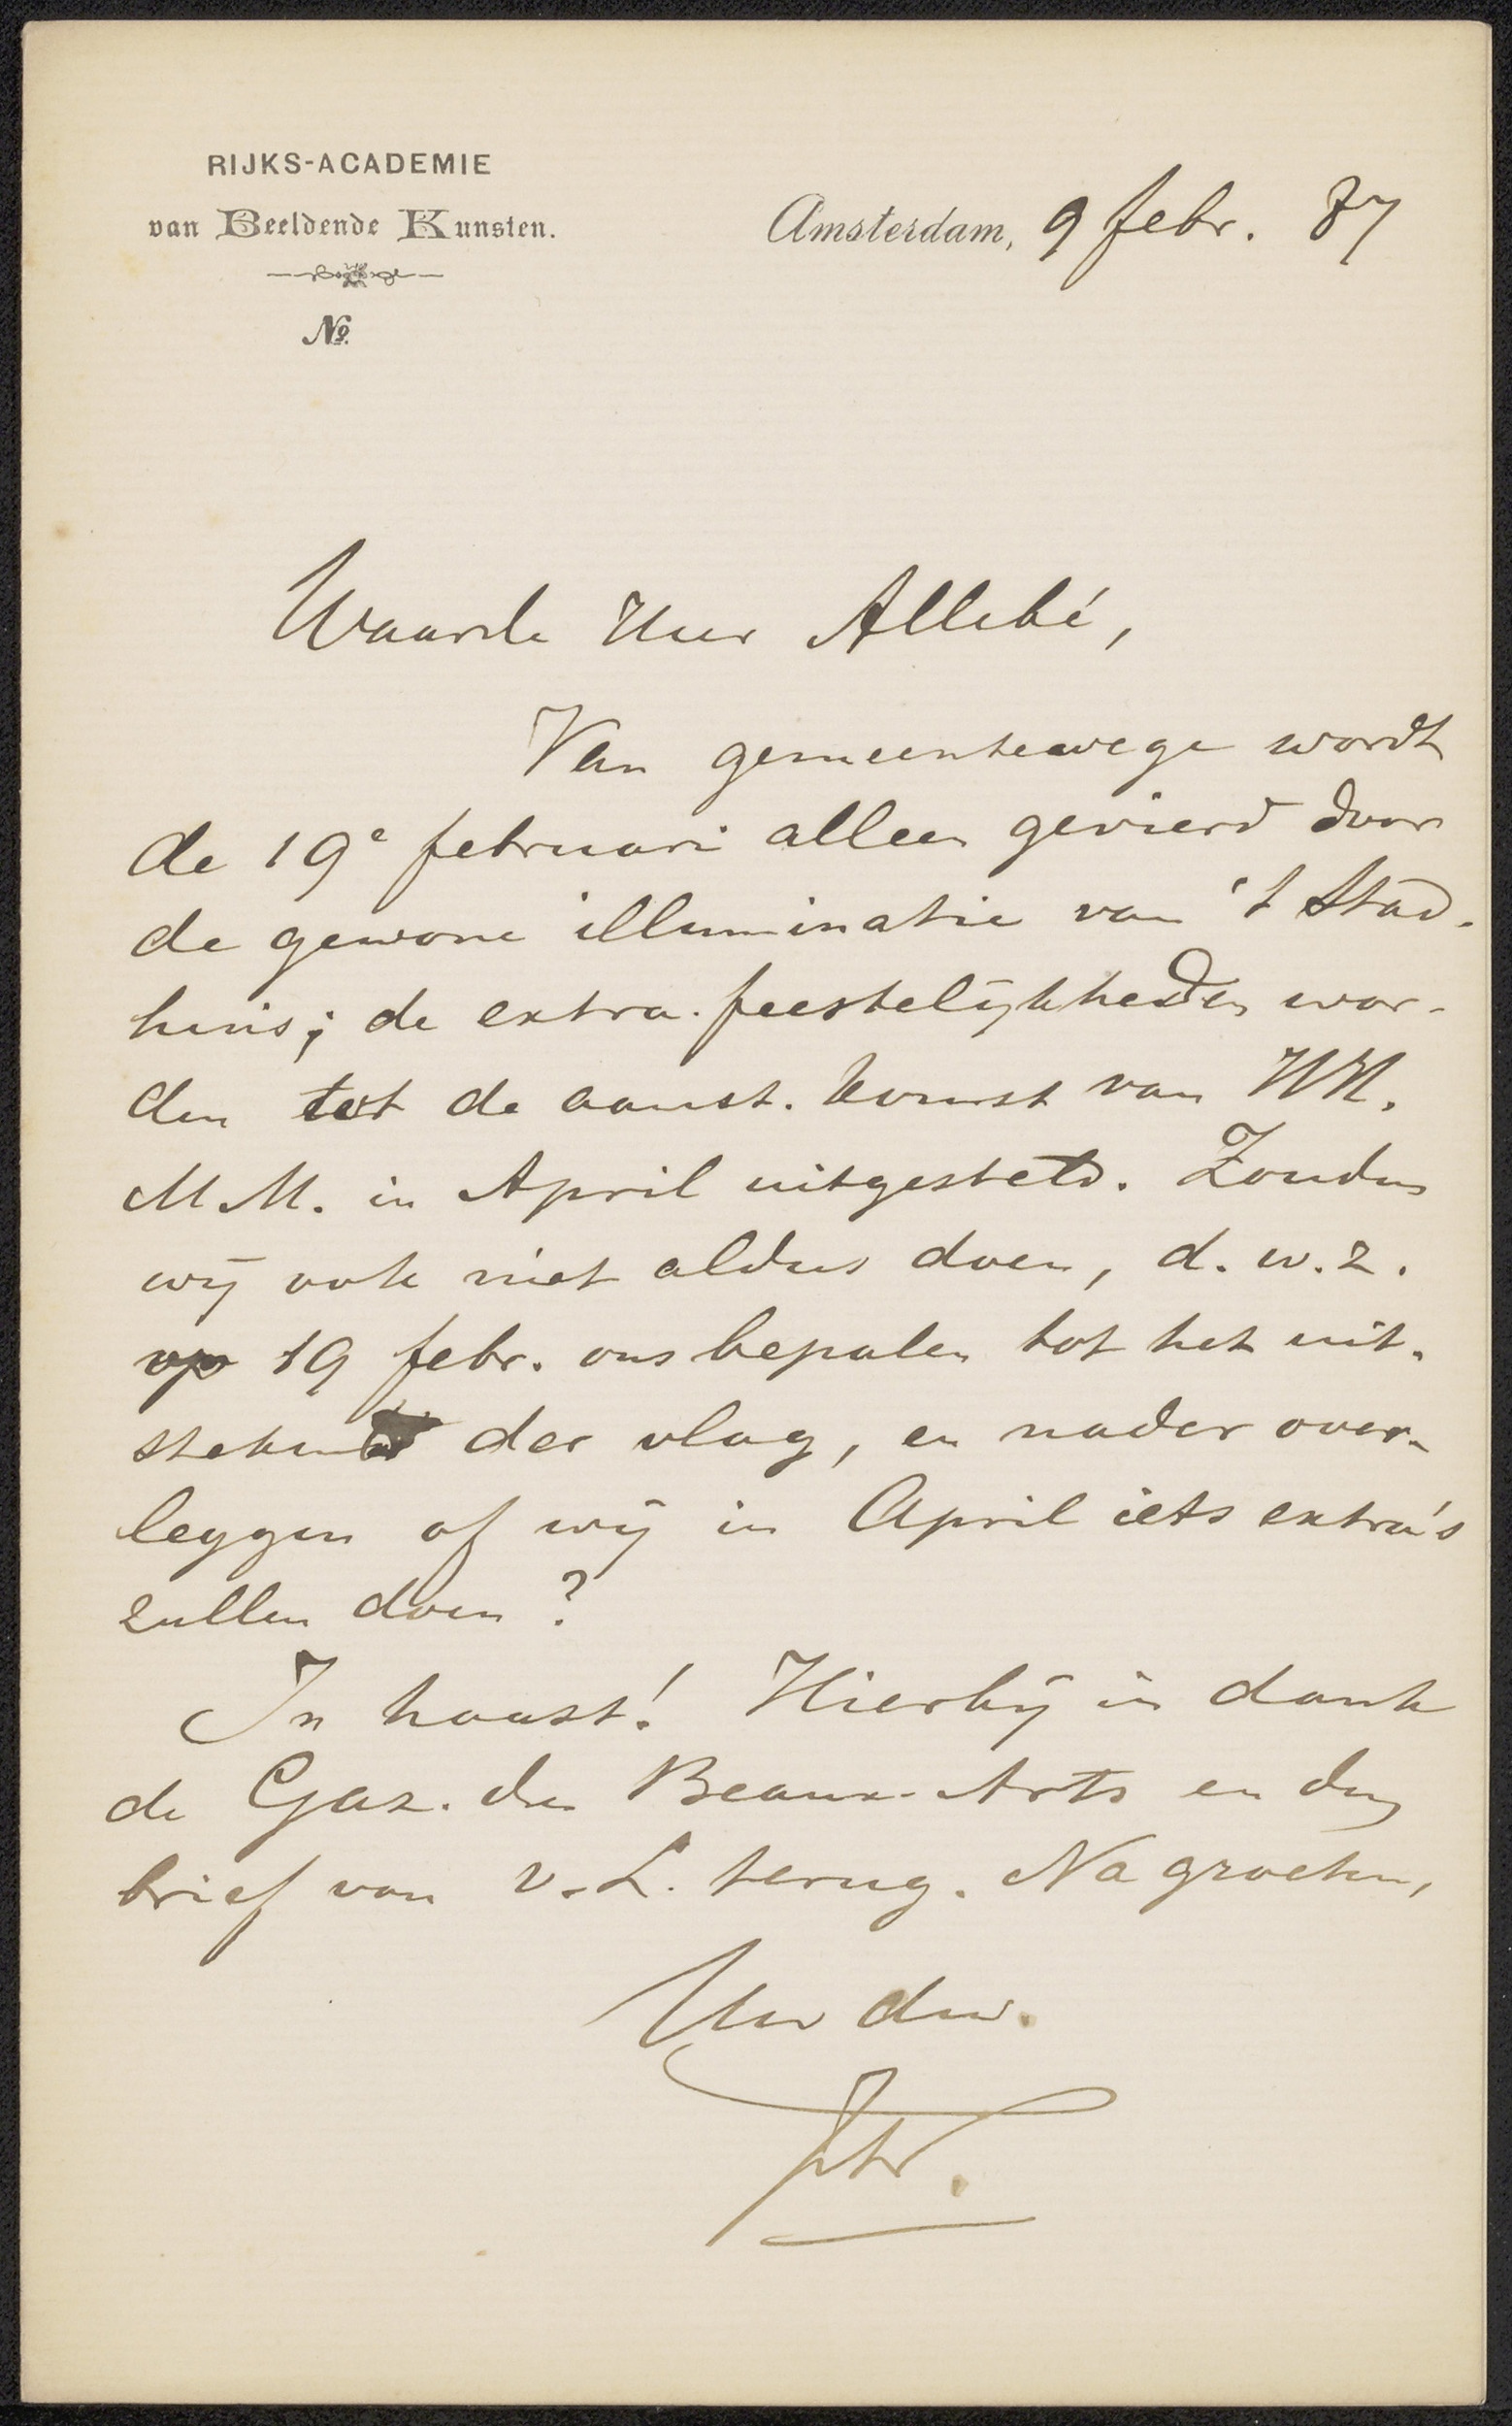 RIJKS-ACADEMIE
van Beeldende Kunsten.
No.
Amsterdam, 9 febr. 87
Waarde Heer Allebé,
Van gemeentewege wordt
de 19e februari alleen gevierd door
de gewone illuminatie van 't Stad-
huis; de extra-feestelijkheden wor-
den tot de aanst. komst van HH.
MM. in April uitgesteld. Zouden
wij ook niet aldus doen, d.w.z.
op 19 febr. ons bepalen tot het uit-
steken der vlag, en nader over-
leggen of wij in April iets extra's
zullen doen?
In haast! Hierbij in dank
de Gaz. des Beaux-Arts en den
brief van v.L. terug. Na groeten,
Uw dw.